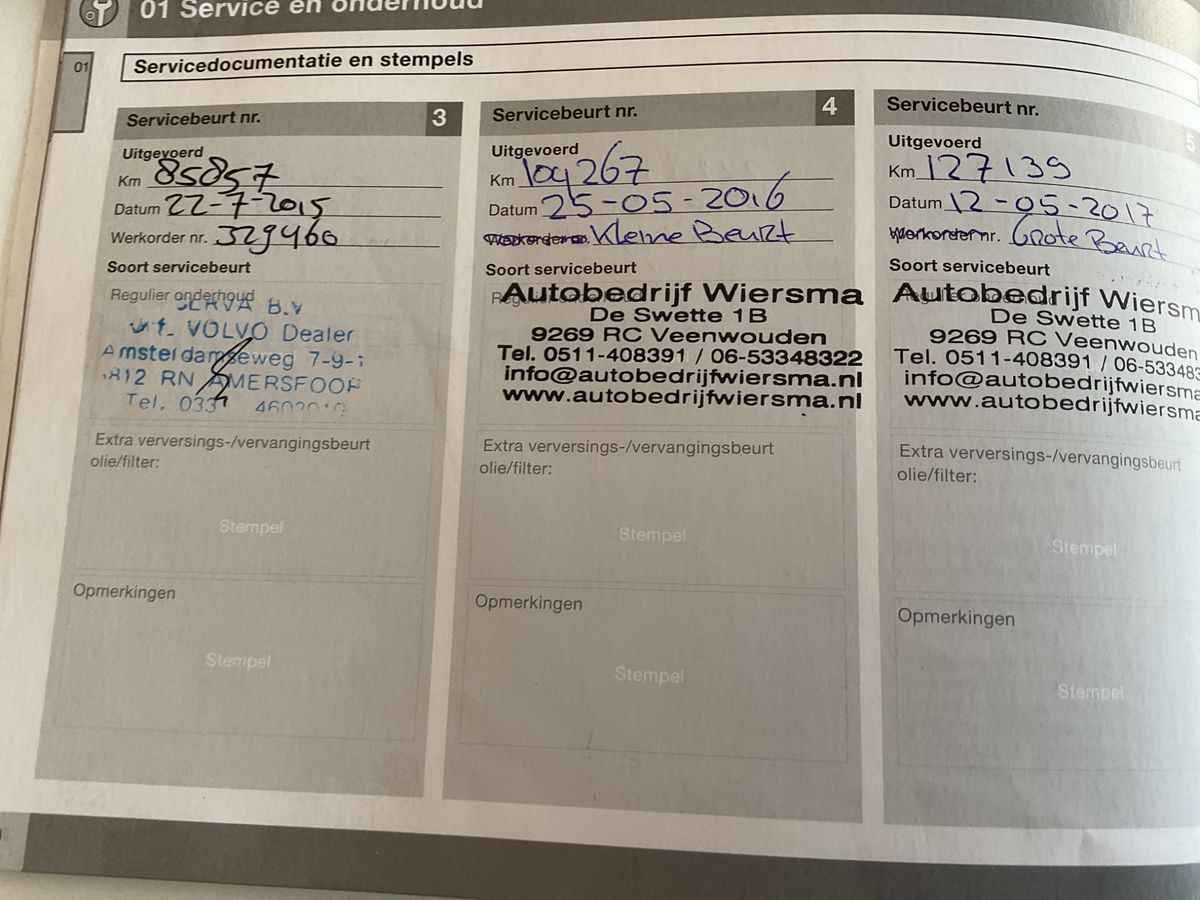 01 Service en onderhoud
01
Servicedocumentatie en stempels
Servicebeurt nr. 3
Uitgevoerd
Km 85857
Datum 22-7-2015
Werkorder nr. 329460
Soort servicebeurt
Regulier onderhoud
B.V
VOLVO Dealer
Amsterdamseweg 7-9-
812 RN AMERSFOOR
Tel. 033
Extra verversings-/vervangingsbeurt
olie/filter:
Stempel
Opmerkingen
Stempel
Servicebeurt nr. 4
Uitgevoerd
Km 109267
Datum 25-05-2016
Werkorder nr. Kleine Beurt
Soort servicebeurt
Regulier onderhoud
Autobedrijf Wiersma
De Swette 1B
9269 RC Veenwouden
Tel. 0511-408391 / 06-53348322
info@autobedrijfwiersma.nl
www.autobedrijfwiersma.nl
Extra verversings-/vervangingsbeurt
olie/filter:
Stempel
Opmerkingen
Stempel
Servicebeurt nr. 5
Uitgevoerd
Km 127139
Datum 12-05-2017
Werkorder nr. Grote Beurt
Soort servicebeurt
Autobedrijf Wiersm
De Swette 1B
9269 RC Veenwouden
Tel. 0511-408391 / 06-533483
info@autobedrijfwiersma
www.autobedrijfwiersma
Extra verversings-/vervangingsbeurt
olie/filter:
Stempel
Opmerkingen
Stempel